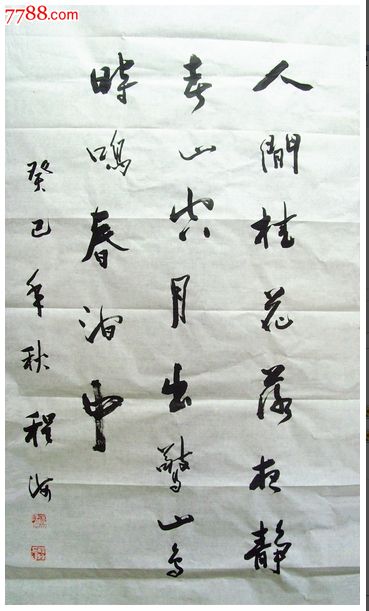 7788.com
人間桂花落夜靜
春山空月出驚山鸟
時鳴春澗中
癸巳年秋程海